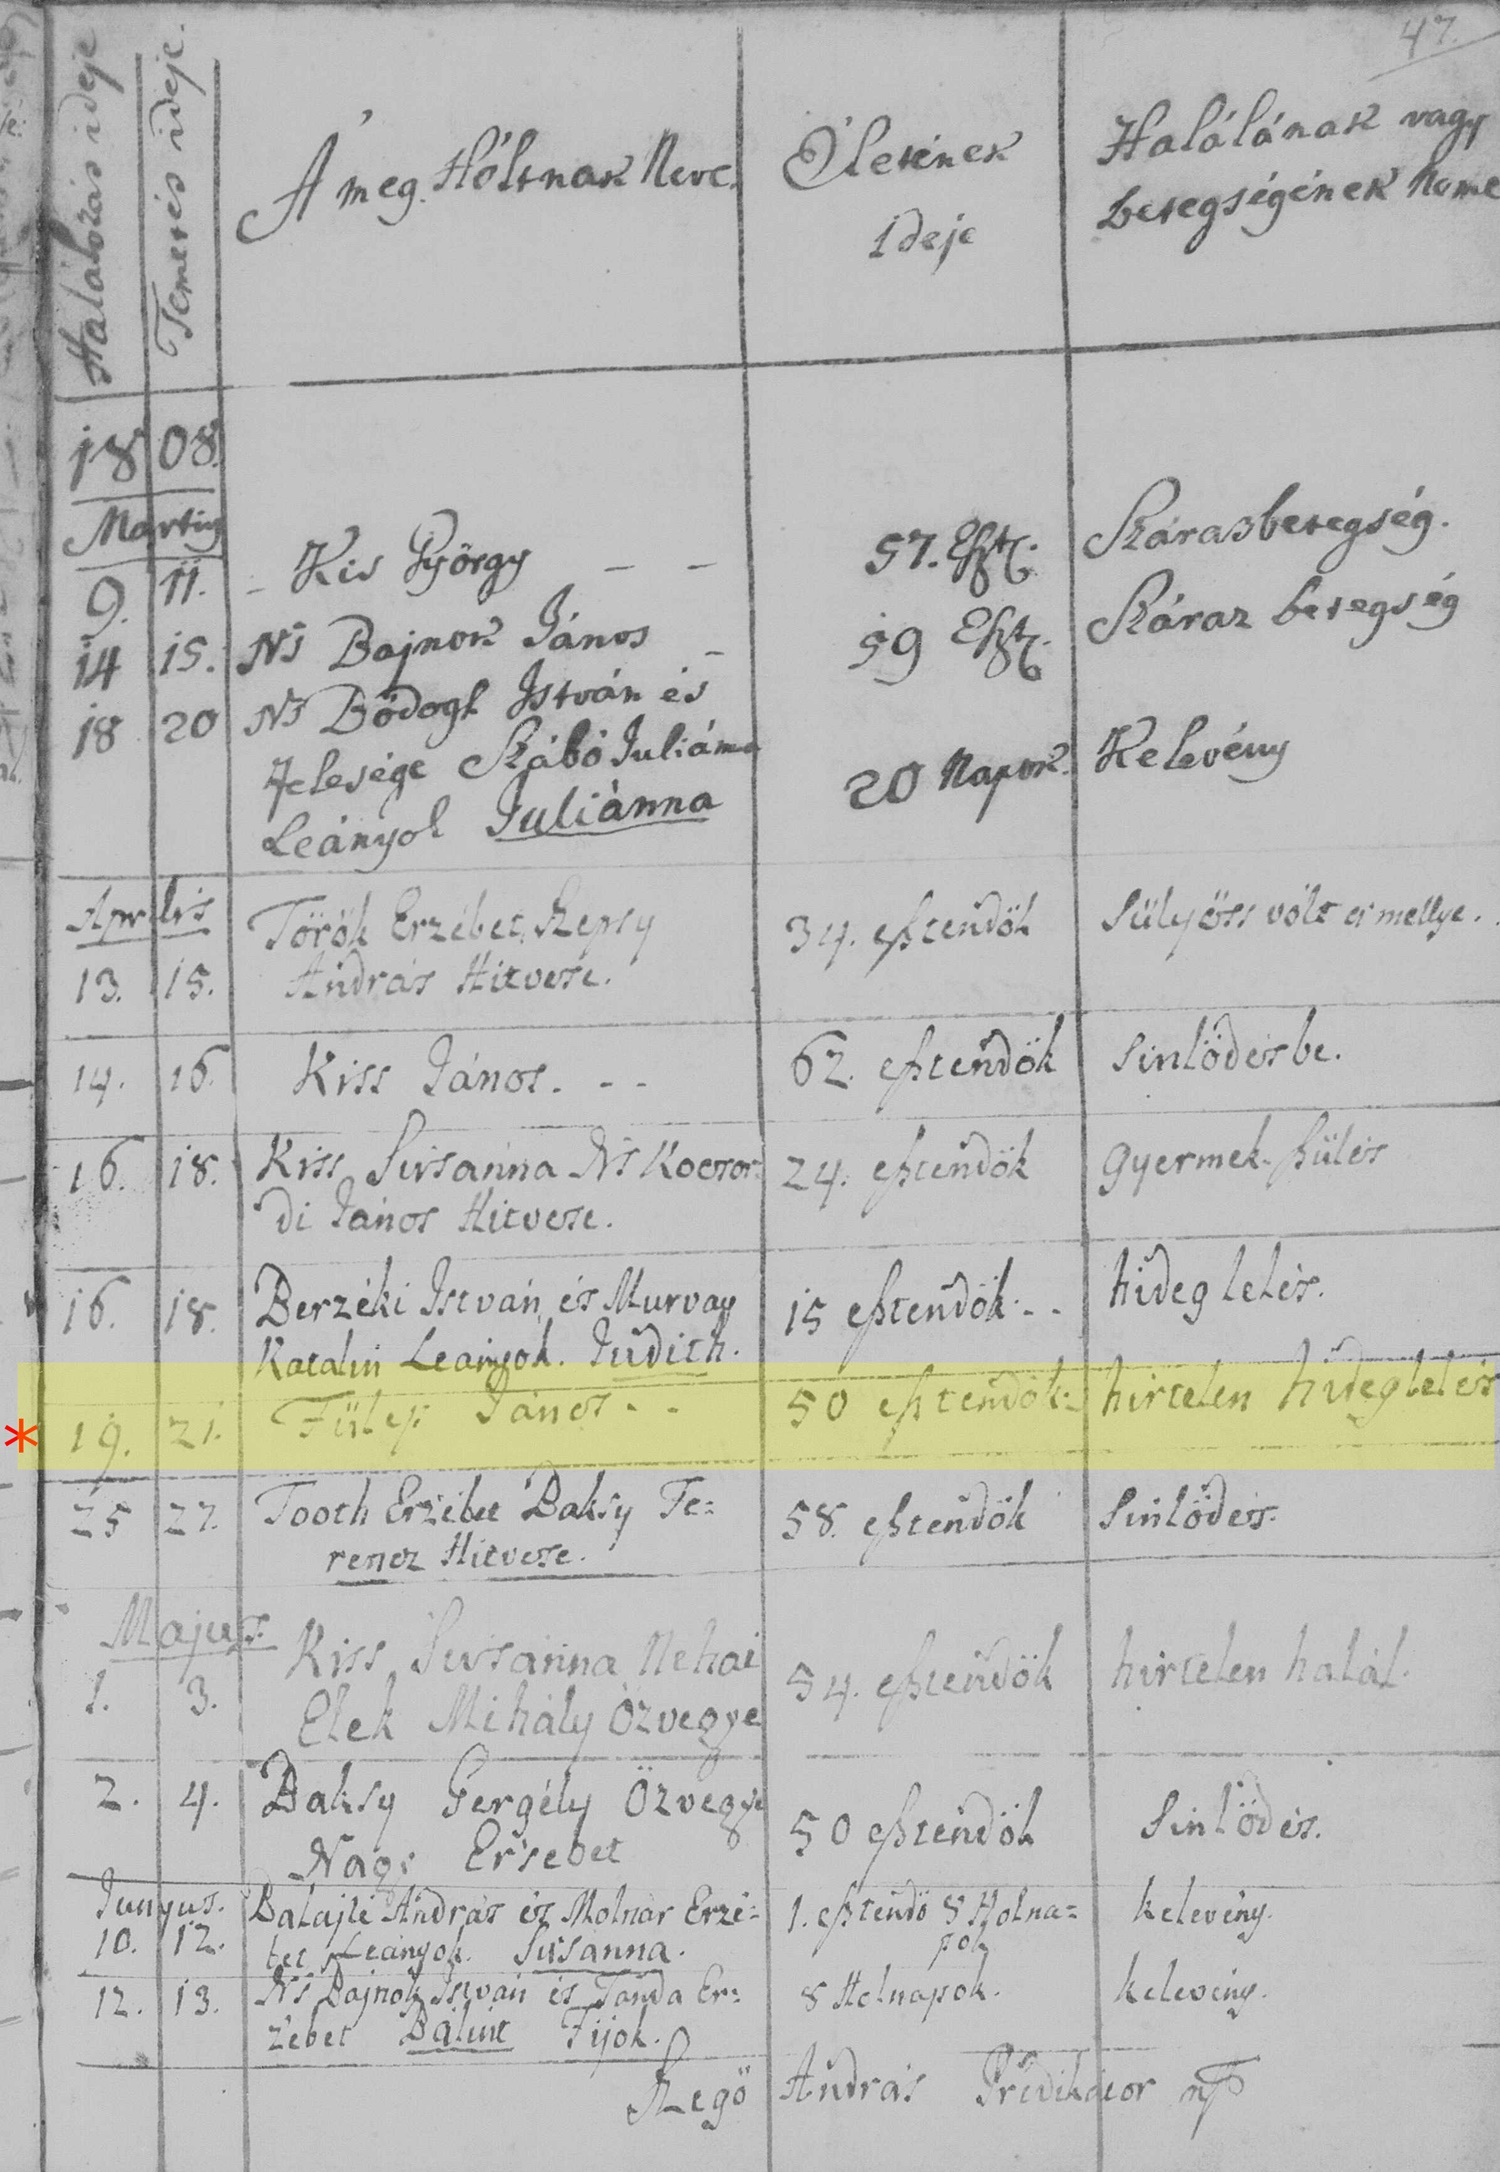 47.
Halálozás ideje
Temetés ideje.
A meg Hóltnak Neve.
Életének
Ideje
Halálának vagy
betegségének Neme
1808.
Martius
9. 11. Kis György - - 57. Eszt. Szárazbetegség.
14 15. Ns Bajnok János - 59 Eszt. Száraz betegség
18 20 Ns Bódogh István és
felesége Szábó Juliánna 20 Napok. Kelevény
Leányok Juliánna
Aprilis
Török Erzébet, Szepsy 34. esztendők Sülyöss vólt a' mellye.
13. 15. András Hitvese.
14. 16. Kiss János. - - 62. esztendők Sinlődésbe.
16. 18. Kiss Susánna Ns Kocsor= 24. esztendők gyermek-szülés
di János Hitvese.
16. 18. Berzéki István és Murvay 15 esztendők. - - hideglelés.
Katalin Leányok. Judith.
19. 21. Fülep János - - 50 esztendők hirtelen hideglelés
25 27. Tooth Erzébet Baksy Fe= 58. esztendők Sinlődés.
rencz Hitvese.
Majus.
1. 3. Kiss Susánna Néhai 54. esztendők hirtelen halál.
Elek Mihály Özvegye
2. 4. Baksy Gergély Özvegye 50 esztendők Sinlődés.
Nagy Ersébet
Junyus.
10. 12. András és Molnár Erzé= 1. esztendő 8 Holna= kelevény.
bet Leányok. Susanna. pok
12. 13. Ns Bajnok István és Tanda Er= 8 Holnapok. kelevény.
zébet Bálint Fijok.
Szegő András Prédikátor